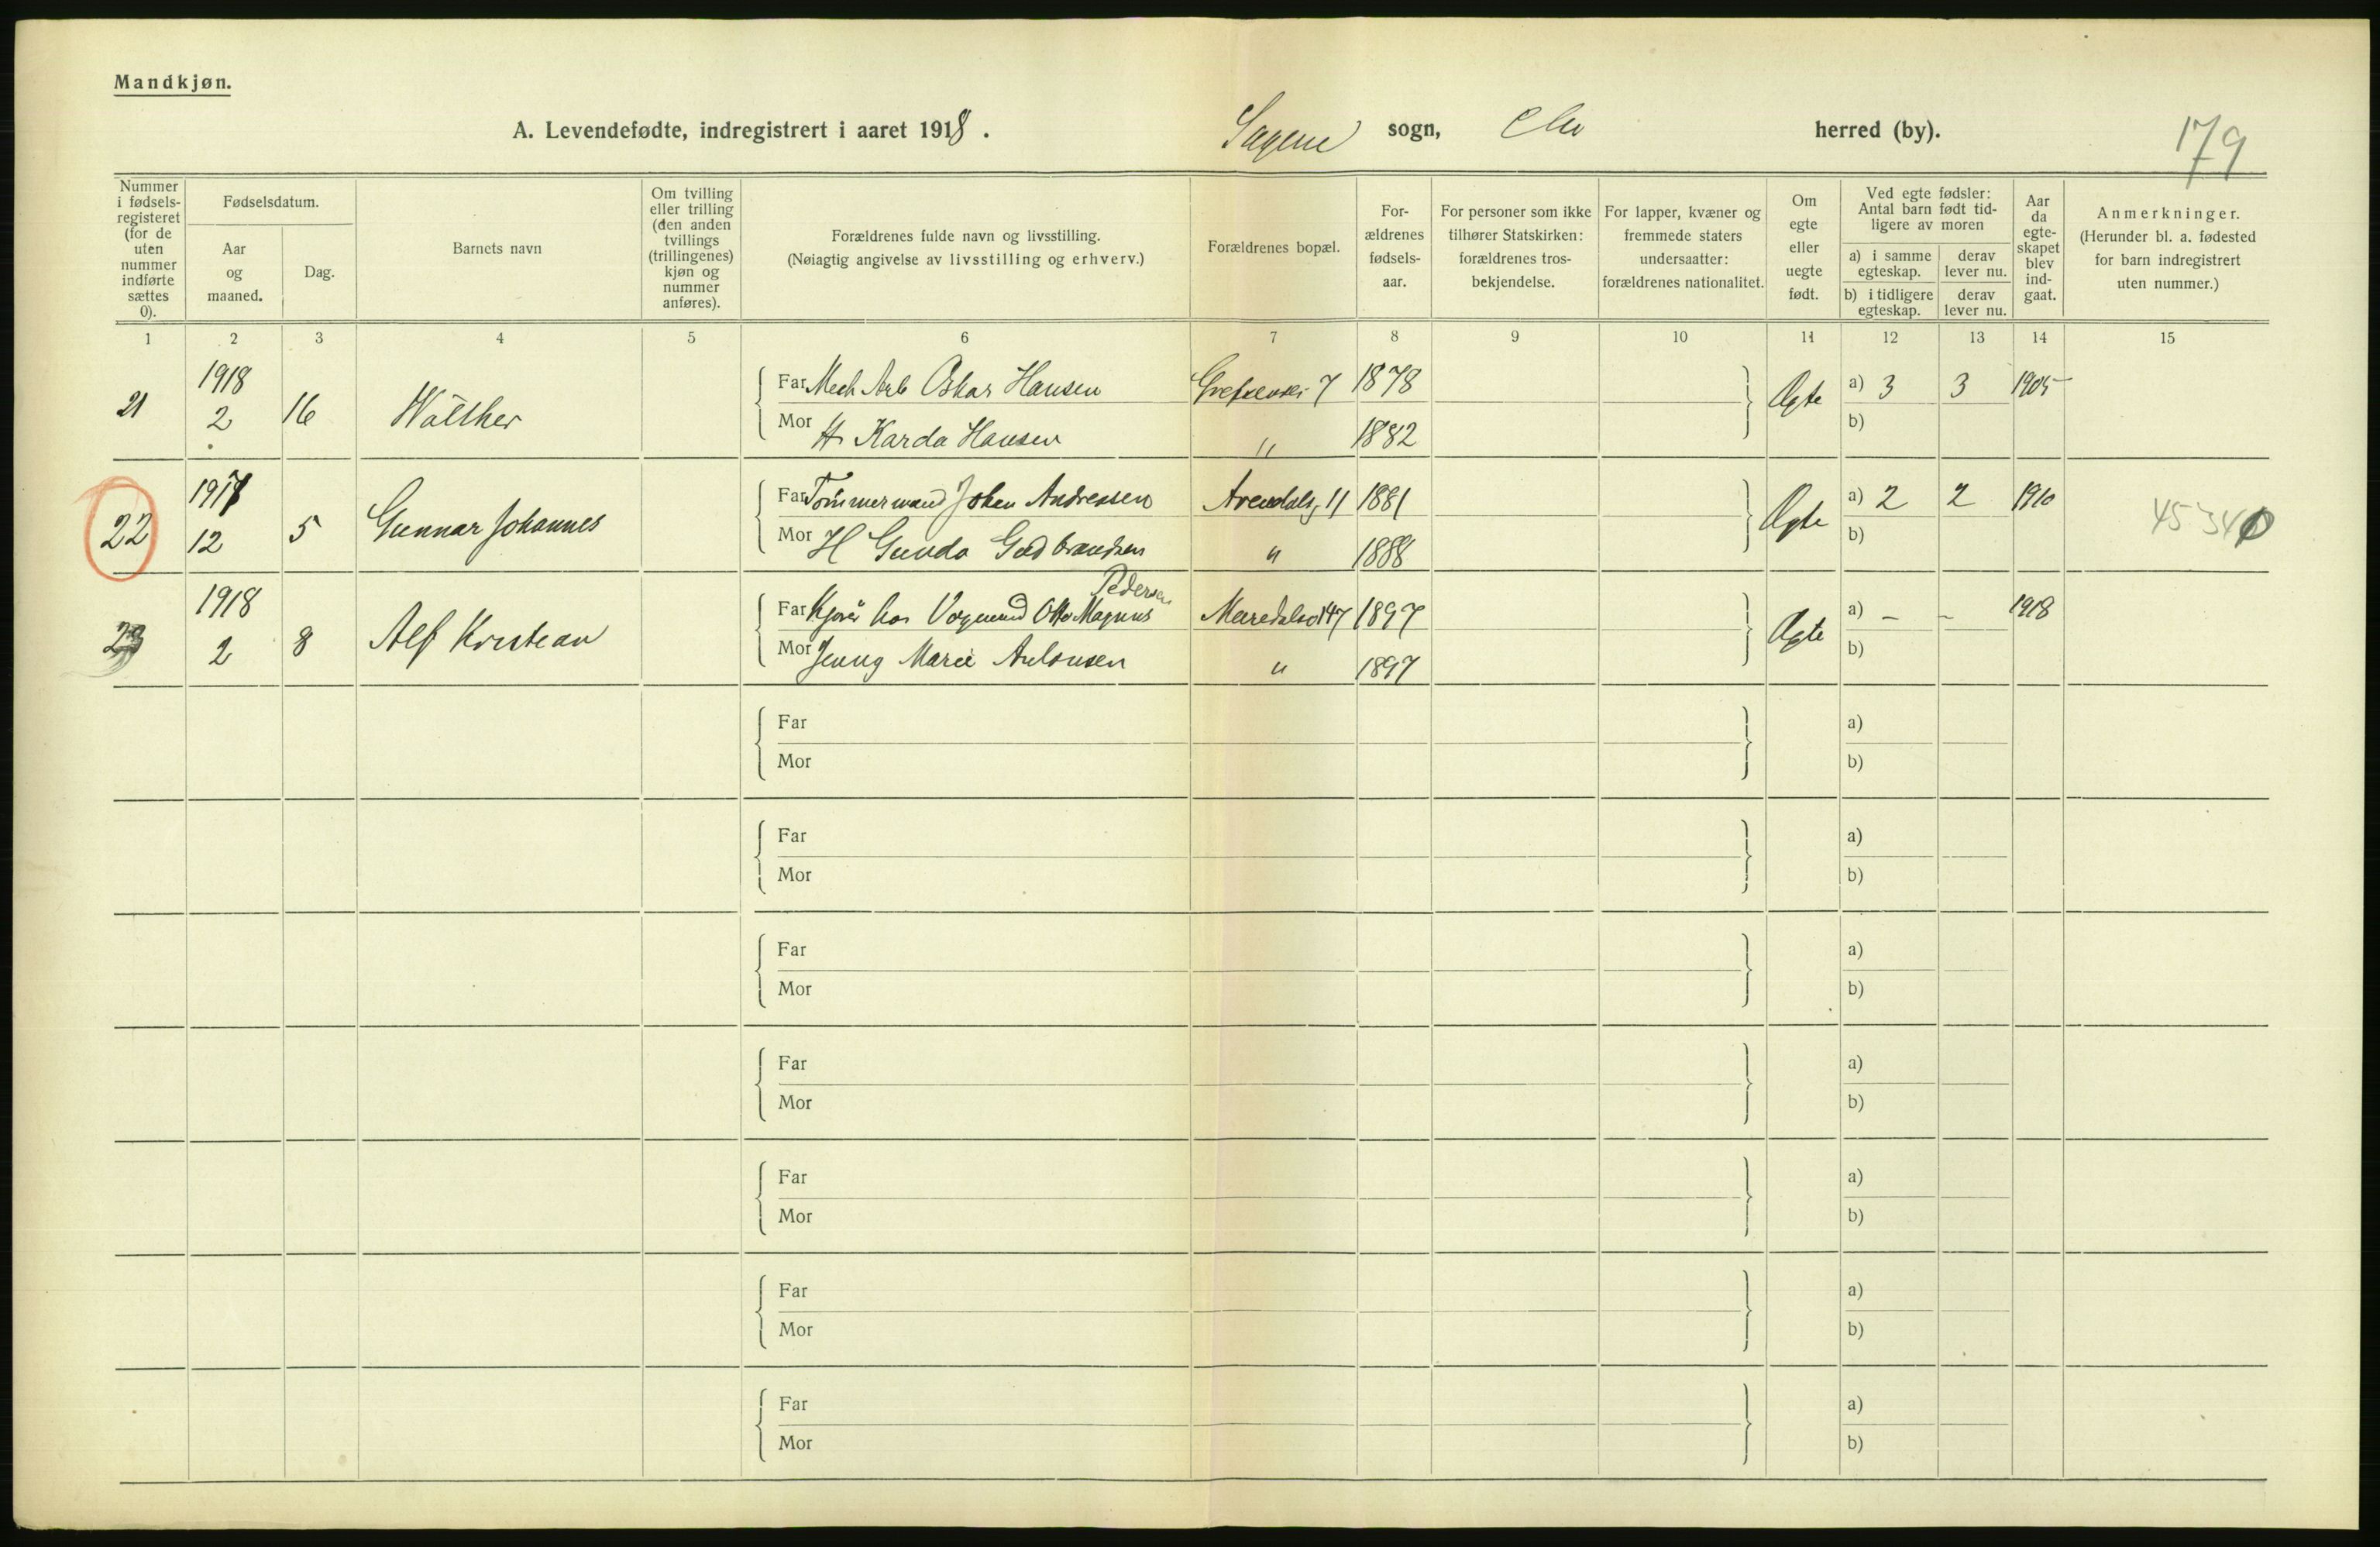 Mandkjøn.
A. Levendefødte, indregistrert i aaret 1918. Sagene sogn, Chr herred (by).
179
Nummer i fødsels-registeret (for de uten nummer indførte sættes 0).
Fødselsdatum.
Aar og maaned.
Dag.
Barnets navn
Om tvilling eller trilling (den anden tvillings (trillingenes) kjøn og nummer anføres).
Forældrenes fulde navn og livsstilling.
(Nøiagtig angivelse av livsstilling og erhverv.)
Forældrenes bopæl.
For-ældrenes fødsels-aar.
For personer som ikke tilhører Statskirken: forældrenes tros-bekjendelse.
For lapper, kvæner og fremmede staters undersaatter: forældrenes nationalitet.
Om egte eller uegte født.
Ved egte fødsler: Antal barn født tid-ligere av moren
a) i samme egteskap.
derav lever nu.
b) i tidligere egteskap.
derav lever nu.
Aar da egte-skapet blev ind-gaat.
Anmerkninger.
(Herunder bl. a. fødested for barn indregistrert uten nummer.)
1 2 3 4 5 6 7 8 9 10 11 12 13 14 15
21 1918 2 16 Walther
Far Mech Arb Oskar Hansen 7 1878 Ægte a) 3 3 1905
Mor H Karda Hansen " 1882 b)
22 1917 12 5 Gunnar Johannes
Far Tömmermand Johan Andressen Arendalsg 11 1881 Ægte a) 2 2 1910
Mor H Gunda Gudbrandsen " 1888 b)
45340
23 1918 2 8 Alf Kristian
Pedersen
Far Kjører hos Vognmand Otto Magnus Maridalsv 147 1897 Ægte a) - - 1918
Mor Jenny Marie Antonsen " 1897 b)
Far a)
Mor b)
Far a)
Mor b)
Far a)
Mor b)
Far a)
Mor b)
Far a)
Mor b)
Far a)
Mor b)
Far a)
Mor b)